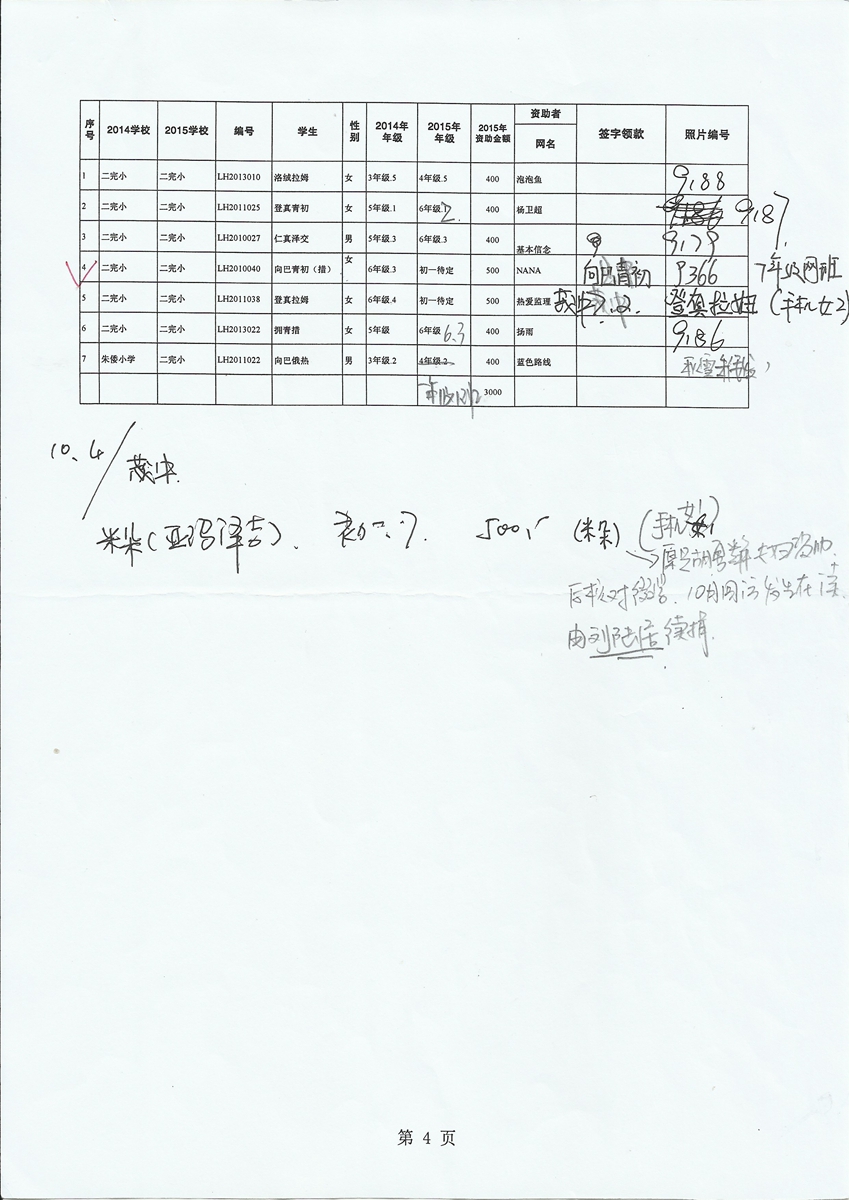 序号 2014学校 2015学校 编号 学生 性别 2014年年级 2015年年级 2015年资助金额 资助者 网名 签字领款 照片编号
1 二完小 二完小 LH2013010 洛绒拉姆 女 3年级.5 4年级.5 400 泡泡鱼 9188
2 二完小 二完小 LH2011025 登真青初 女 5年级.1 6年级.2 400 杨卫超 9187
3 二完小 二完小 LH2010027 仁真泽交 男 5年级.3 6年级.3 400 基本信念 9179
4 二完小 二完小 LH2010040 向巴青初（措） 女 6年级.3 初一待定 500 NANA 向巴青初 9366 7年级网班
5 二完小 二完小 LH2011038 登真拉姆 女 6年级.4 初一待定 500 热爱监理 登真拉姆（手机女2）
6 二完小 二完小 LH2013022 拥青措 女 5年级 6年级 6.3 400 扬雨 9186
7 朱倭小学 二完小 LH2011022 向巴俄热 男 3年级.2 4年级.2 400 蓝色路线
3000
10.4
米朵（亚玛泽吉）. 500 （米朵）
由刘陆居续捐.
第 4 页